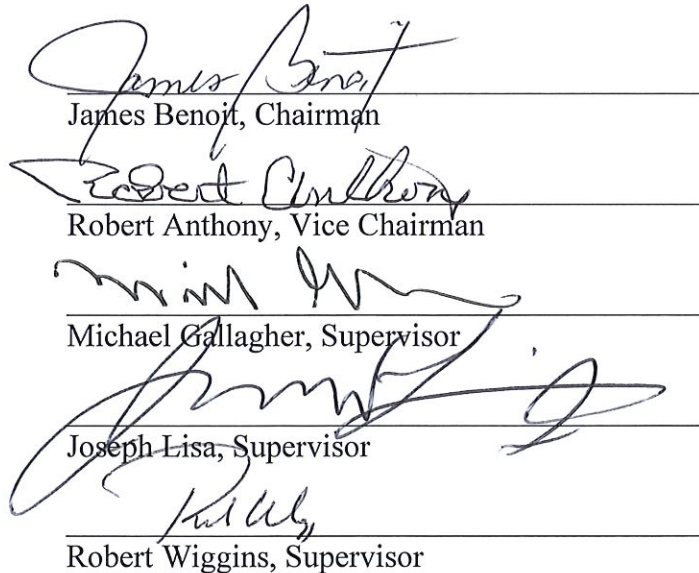 James Benoit
James Benoit, Chairman
Robert Anthony
Robert Anthony, Vice Chairman
Michael Gallagher, Supervisor
Joseph Lisa, Supervisor
Robert Wiggins, Supervisor